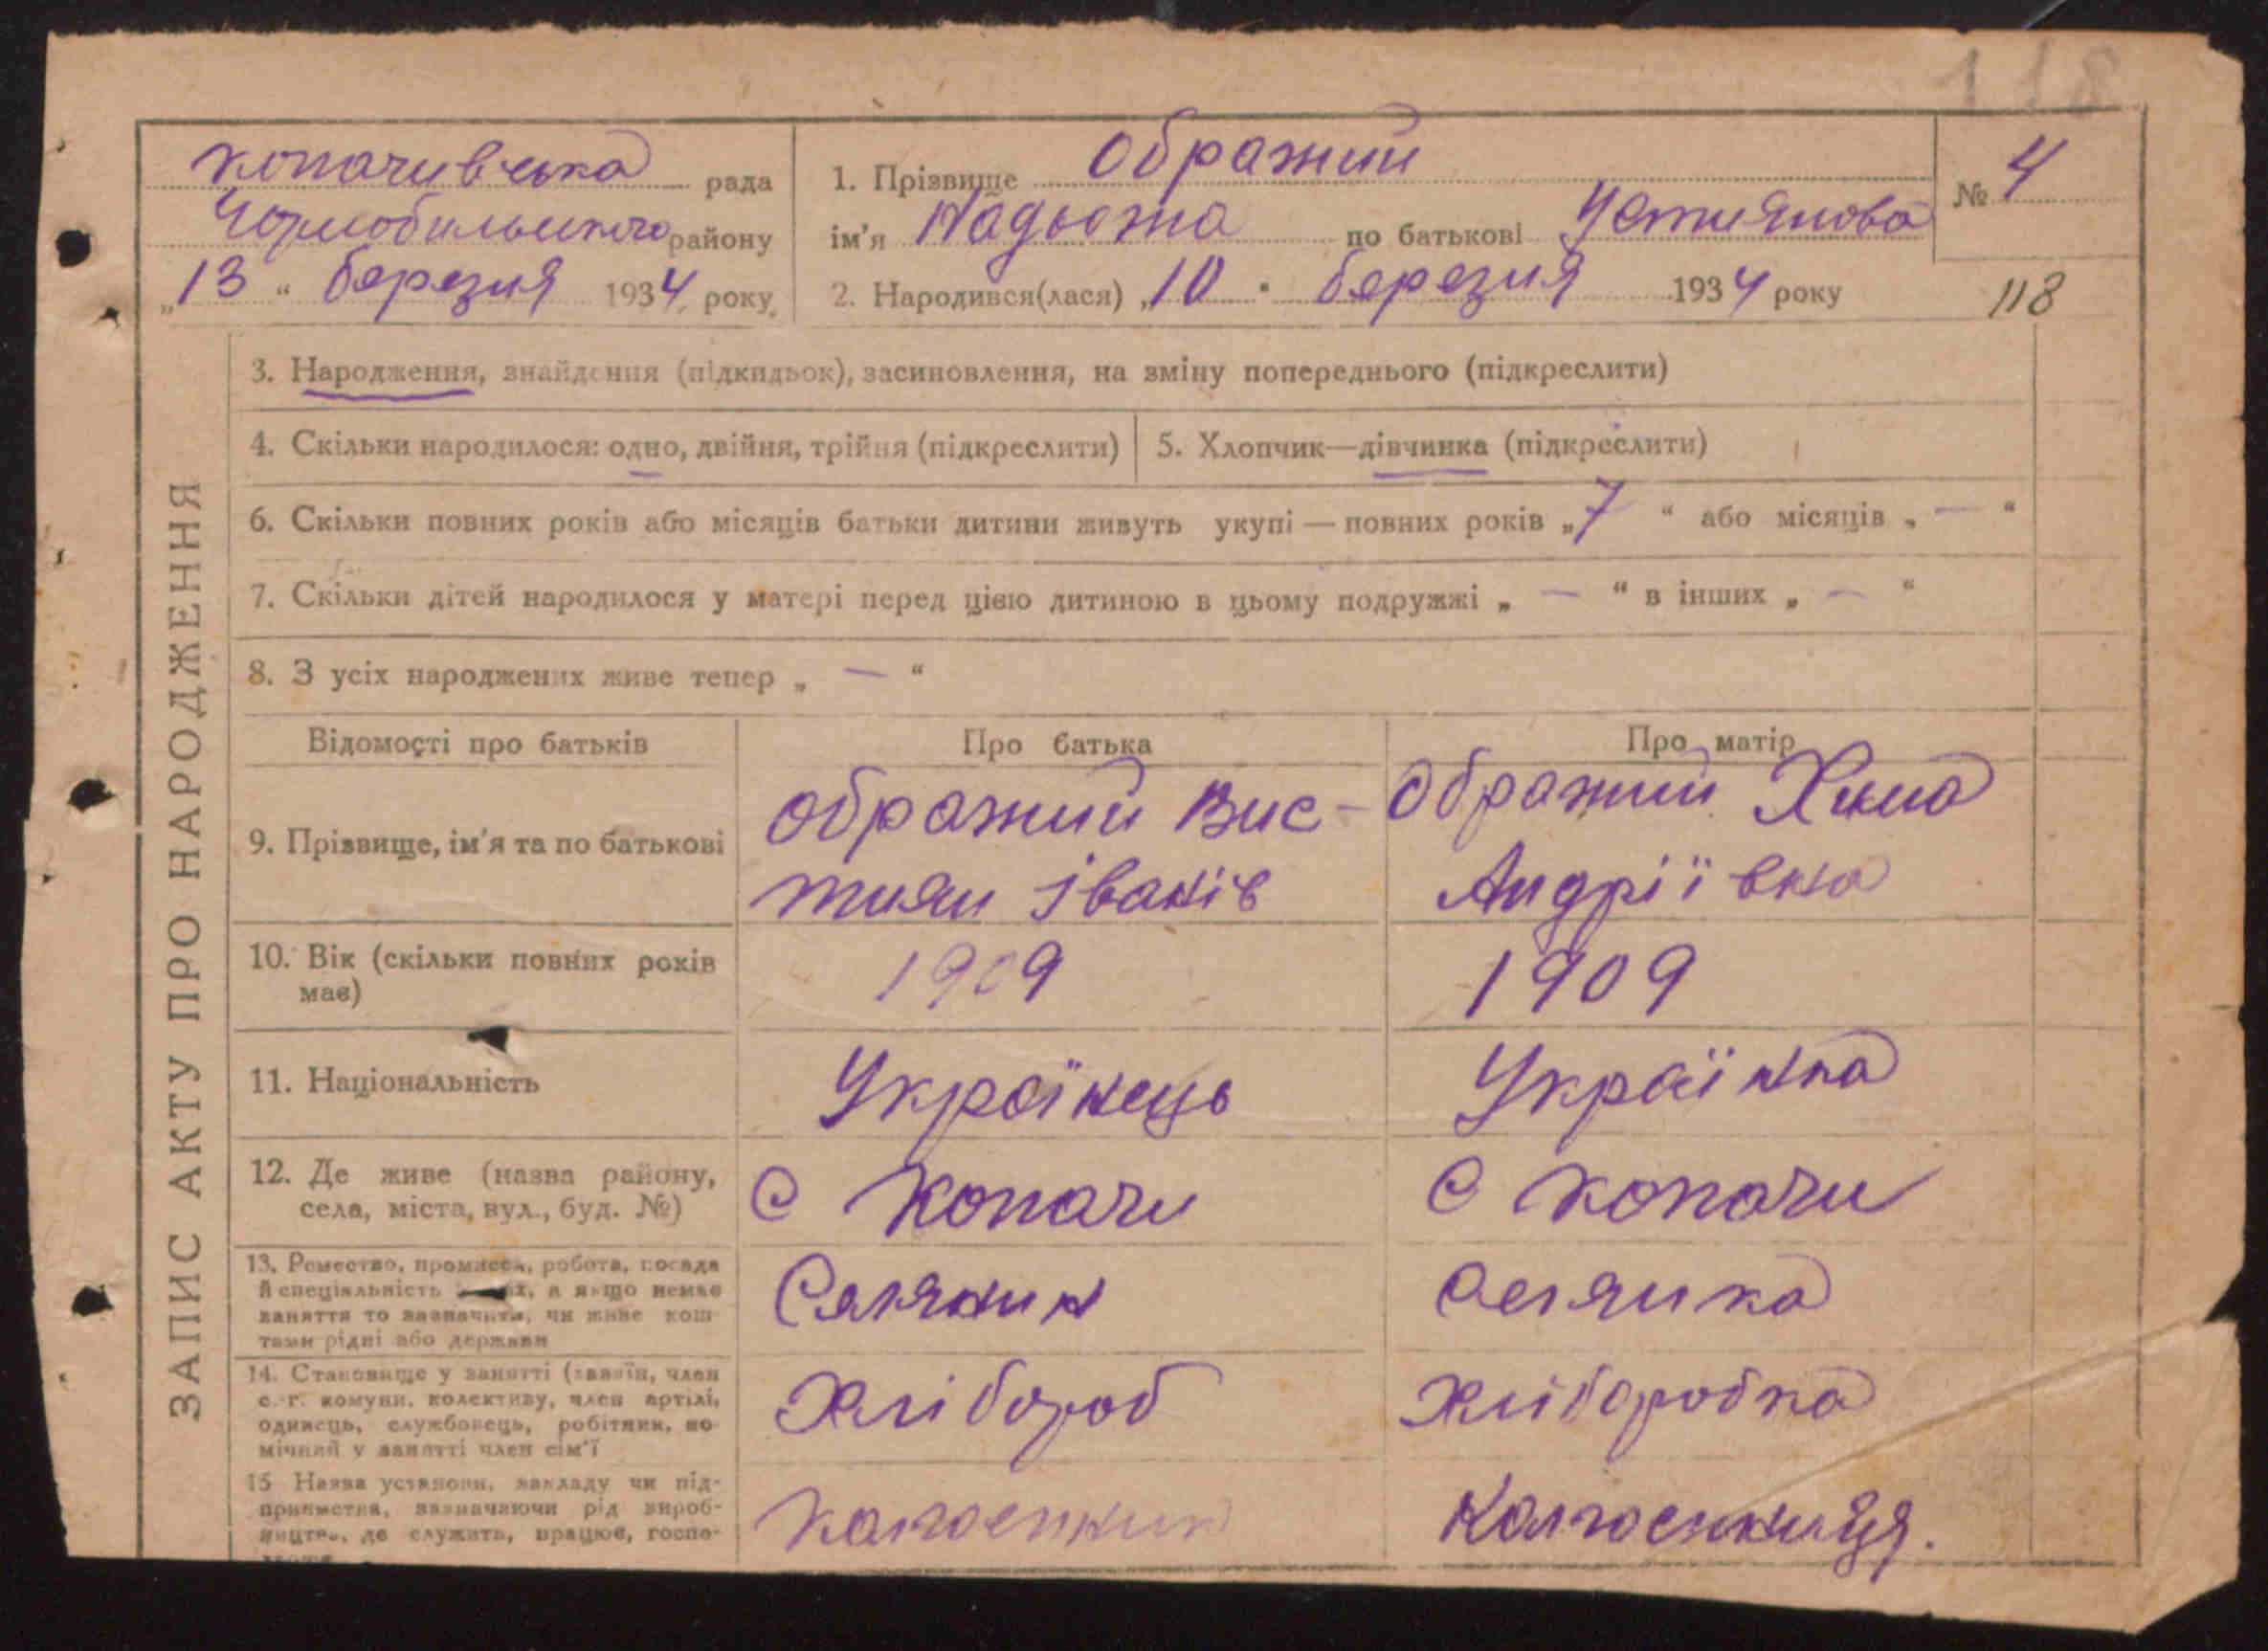 118
Копачивська рада
Чорнобильського району
„13“ березня 1934 року
1. Прізвище Ображий
ім'я Надьожа по батькові Устиянова
№ 4
2. Народився(лася) „10“ березня 1934 року
118
ЗАПИС АКТУ ПРО НАРОДЖЕННЯ
3. Народження, знайдення (підкидьок), засиновлення, на зміну попереднього (підкреслити)
4. Скільки народилося: одно, двійня, трійня (підкреслити)
5. Хлопчик—дівчинка (підкреслити)
6. Скільки повних років або місяців батьки дитини живуть укупі — повних років „7“ або місяців „—“
7. Скільки дітей народилося у матері перед цією дитиною в цьому подружжі „—“ в інших „—“
8. З усіх народжених живе тепер „—“
Відомості про батьків
Про батька
Про матір
9. Прізвище, ім'я та по батькові
Ображий Вис-
тиян Іванів
Ображий Хима
Андріївна
10. Вік (скільки повних років
має)
1909
1909
11. Національність
Українець
Українка
12. Де живе (назва району,
села, міста, вул., буд. №)
С Копачи
С Копачи
13. Ремество, промисел, робота, посада
й спеціальність а якщо немає
заняття то зазначити, чи живе кош-
тами рідні або держави
Селянин
Селянка
14. Становище у занятті (хазяїн, член
с.-г. комуни, колективу, член артілі,
одинець, службовець, робітник, по-
мічний у занятті член сім'ї
Хлібороб
Хлiборобка
15 Назва установи, закладу чи під-
приємства, зазначаючи рід вироб-
ництва, де служить, працює, госпо-
Колгоспник
Колгоспниця.